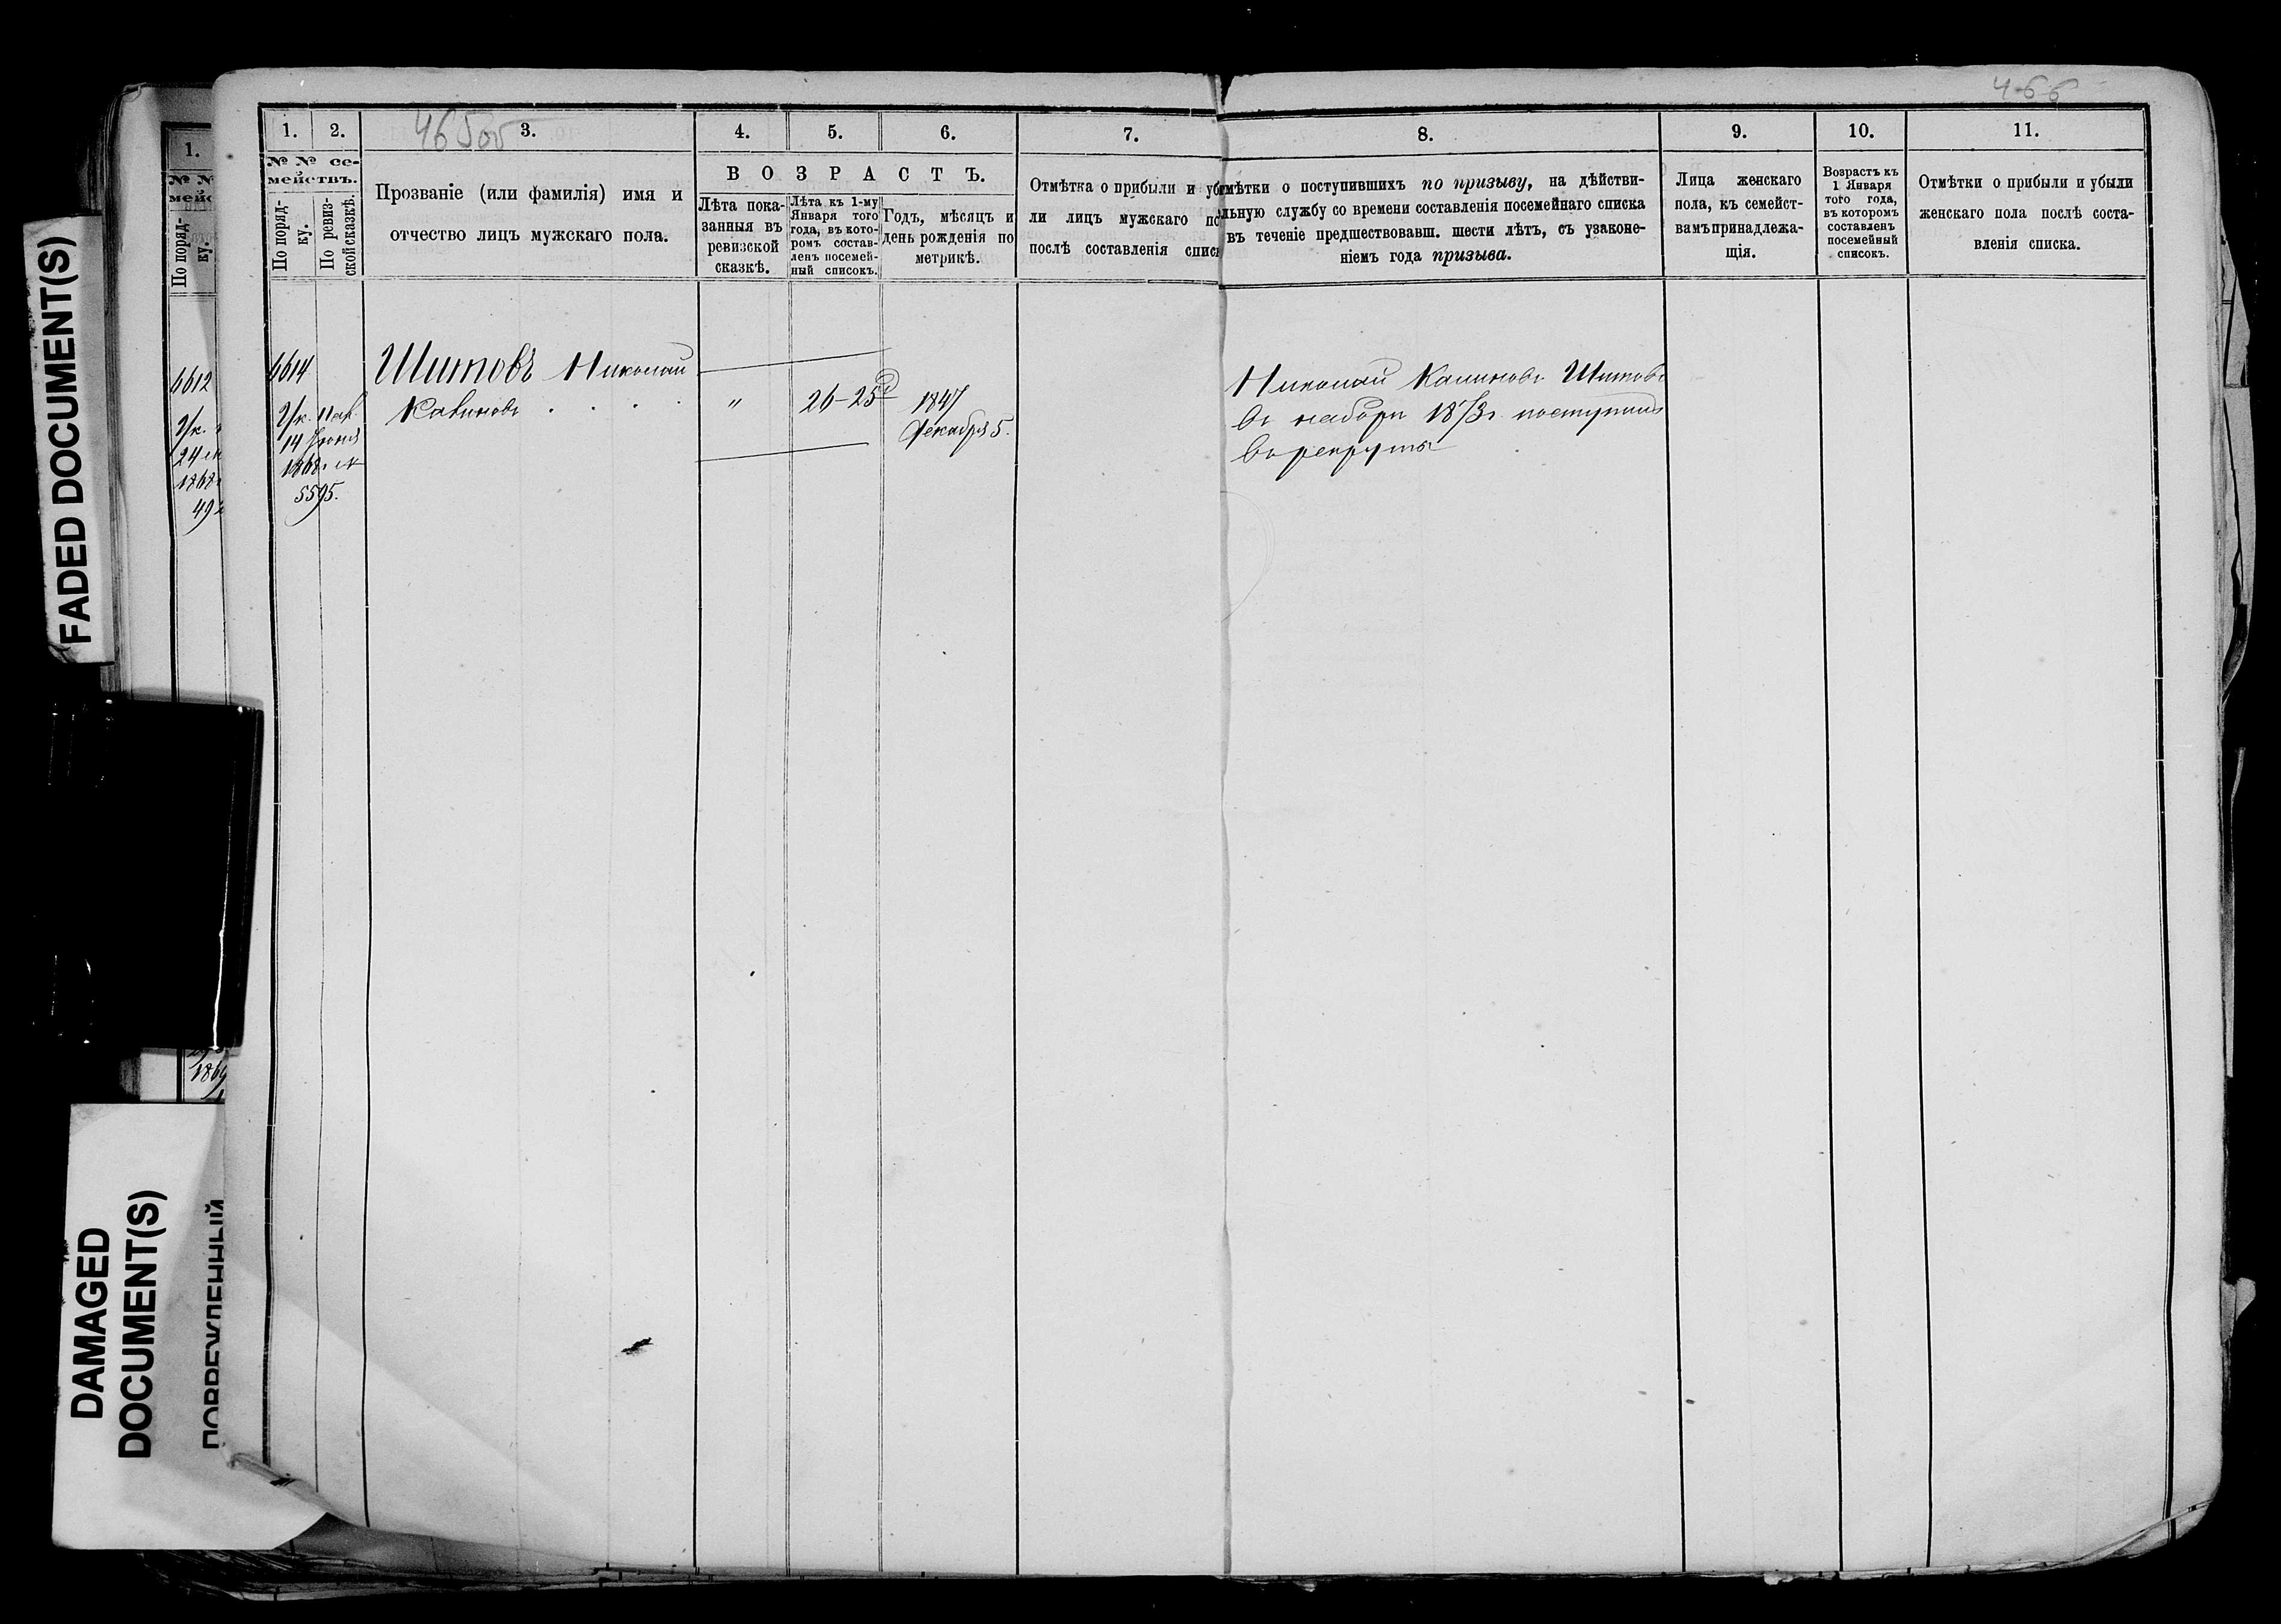 FADED DOCUMENT(S)
DAMAGED
DOCUMENT(S)
1.
6612
24
1868
49
1869
466
46 5об
1. 2. 3. 4. 5. 6. 7. 8. 9. 10. 11.
№ № се-
мействъ.
По поряд-
ку.
По ревиз-
ской сказкѣ.
Прозваніе (или фамилія) имя и
отчество лицъ мужскаго пола.
ВОЗРАСТЪ.
Лѣта пока-
занныя въ
ревизской
сказкѣ.
Лѣта къ 1-му
Января того
года, въ кото-
ромъ состав-
ленъ посемей-
ный списокъ.
Годъ, мѣсяцъ и
день рожденія по
метрикѣ.
Отмѣтка о прибыли и убы
ли лицъ мужскаго по
послѣ составленія списк
мѣтки о поступившихъ по призыву, на дѣйстви-
льную службу со времени составленія посемейнаго списка
въ теченіе предшествовавш. шести лѣтъ, съ узаконе-
ніемъ года призыва.
Лица женскаго
пола, къ семейст-
вамъ принадлежа-
щія.
Возрастъ къ
1 Января
того года,
въ которомъ
составленъ
посемейный
списокъ.
Отмѣтки о прибыли и убыли
женскаго пола послѣ соста-
вленія списка.
6614
Ук. Пал.
14 Іюня
1868г. №
5595.
Шитовъ Николай
" 26-25
1847
Декабря 5.
Николай Шитовъ
въ наборъ 1873г. поступилъ
въ рекруты